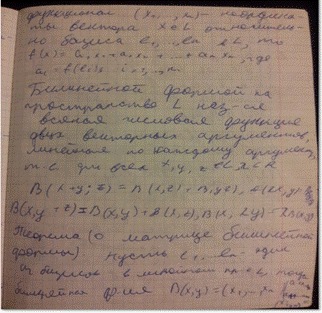 функционал (x₁, , xₙ) – координа-
ты вектора x ∈ L относитель-
но базиса e₁, , eₙ ∈ L, то
f(x) = a₁x₁ + a₂x₂ + + aₙxₙ, где
aᵢ = f(eᵢ), i =
Билинейной формой на
пространстве L наз-ся
всякая числовая функция
двух векторных аргументов,
линейная по каждому аргумен,
т.е. для всех x, y, z ∈ L
B(x+y; z) = B(x, z) + B(y, z),
B(x, y + z) = B(x, y) + B(x, z), B(x, λy) =
Теорема (о матрице билинейной
формы). Пусть e₁, eₙ – один
из базисов в линейном пр-ве, тогда
билинейная ф-ия B(x, y) = (x₁, xₙ